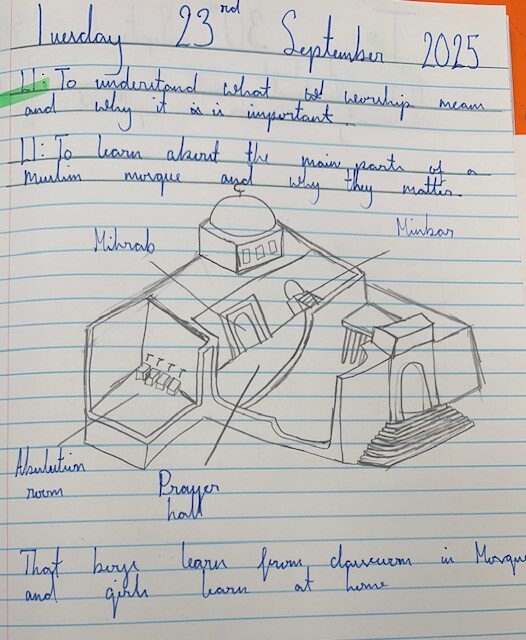 Tuesday 23rd September 2025
LI: To understand what worship mean
and why it is is important.
LI: To learn about the main parts of a
Muslim mosque and why they matter.
Mihrab
Minbar
Abulution
room
Prayer
hall
That boys learn from in Mosque
and girls learn at home